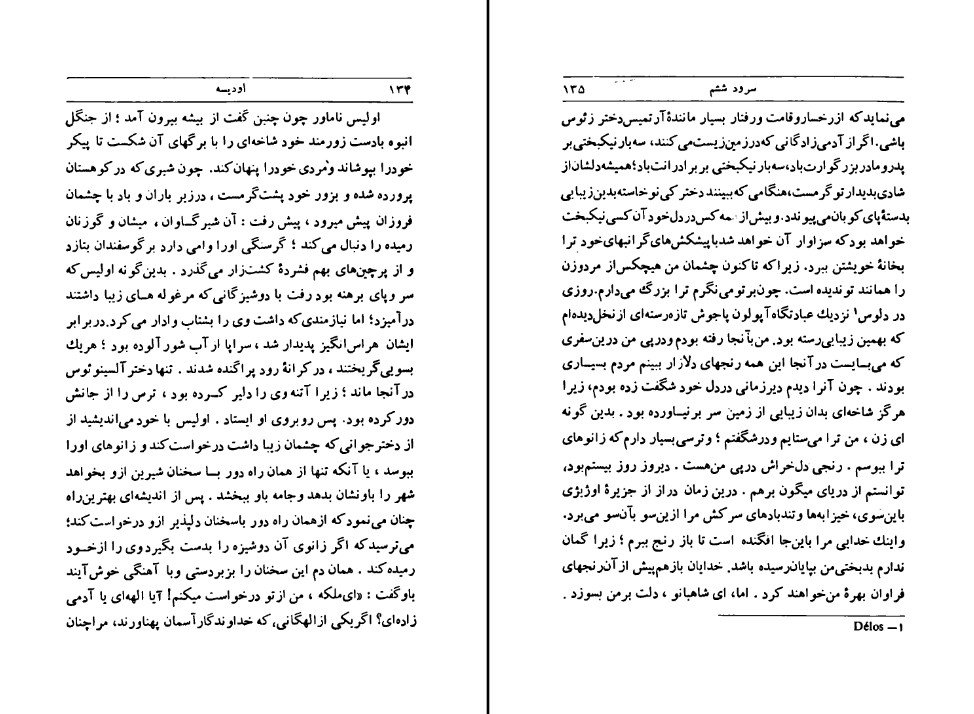 ۱۳۴ اودیسه
اولیس ناماور چون چنین گفت از بیشه بیرون آمد ؛ از جنگل
انبوه بادست زورمند خود شاخه‌ای را با برگهای آن شکست تا پیکر
خودرا بپوشاند ومردی خودرا پنهان‌کند. چون شیری‌که درکوهستان
پرورده شده و بزور خود پشت‌گرمست ، درزیر باران و باد با چشمان
فروزان پیش میرود ، پیش رفت : آن شیر گاوان ، میشان و گوزنان
رمیده را دنبال می‌کند ؛ گرسنگی اورا وامی دارد برگوسفندان بتازد
و از پرچین‌های بهم فشردهٔ کشت‌زار می‌گذرد . بدین‌گونه اولیس‌که
سر وپای برهنه بود رفت با دوشیزگانی‌که مرغوله های زیبا داشتند
درآمیزد؛ اما نیازمندی‌که داشت وی را بشتاب وادار می‌کرد.دربرابر
ایشان هراس‌انگیز پدیدار شد ، سراپا از آب شور آلوده بود ؛ هریك
بسویی‌گریختند ، درکرانهٔ رود پراگنده شدند . تنها دختر آلسینوئوس
درآنجا ماند ؛ زیرا آتنه وی را دلیر کرده بود ، ترس را از جانش
دورکرده بود. پس روبروی او ایستاد . اولیس با خود می‌اندیشید از
از دخترجوانی‌که چشمان زیبا داشت درخواست‌کند و زانوهای اورا
ببوسد ، یا آنکه تنها از همان راه دور بـا سخنان شیرین ازو بخواهد
شهر را باونشان بدهد وجامه باو ببخشد . پس از اندیشه‌ای بهترین‌راه
چنان می‌نمودکه ازهمان راه دور باسخنان دلپذیر ازو درخواست‌کند؛
می‌ترسیدکه اگر زانوی آن دوشیزه را بدست بگیردوی را ازخـود
رمیده‌کند . همان دم این سخنان را بزبردستی وبا آهنگی خوش‌آیند
باوگفت : «ای‌ملکه ، من ازتو درخواست میکنم! آیا الهه‌ای یا آدمی
زاده‌ای؟ اگریکی ازالهگانی،که خداوندگار آسمان پهناورند، مراچنان
سرود ششم ۱۳۵
می‌نماید که ازرخسار وقامت ورفتار بسیار مانندهٔ آرتمیس‌دختر زئوس
باشی. اگراز آدمی‌زادگانی که‌درزمین‌زیست‌می‌کنند، سه‌بارنیکبختی‌بر
پدرومادربزرگوارت‌باد، سه‌بارنیکبختی بربرادرانت‌باد؛ همیشه‌دلشان‌از
شادی‌بدیدارتوگرمست،هنگامی‌که‌ببینند دخترکی‌نوخاسته‌بدین‌زیبایی
بدستهٔ‌پای‌کوبان‌می‌پیوندد.وبیش‌از همه‌کس‌دردل‌خودآن‌کسی‌نیکبخت
خواهد بودکه سزاوار آن خواهد شدباپیشکش‌های‌گرانبهای‌خود ترا
بخانهٔ خویشتن ببرد. زیرا که تاکنون چشمان من هیچکس‌از مردوزن
را همانند توندیده است. چون‌برتومی‌نگرم ترا بزرگ می‌دارم.روزی
در دلوس۱ نزدیك عبادتگاه آپولون پاجوش تازه‌رسته‌ای ازنخل‌دیده‌ام
که بهمین زیبایی‌رسته بود. من‌بآنجا رفته بودم ودرپی من دراین‌سفری
که می‌بـایست درآنجا این همه رنجهای دلازار ببینم مردم بسیـاری
بودند . چون آنرا دیدم دیرزمانی دردل خود شگفت زده بودم، زیرا
هرگز شاخه‌ای بدان زیبایی از زمین سر برنیاورده بود . بدین گونه
ای زن ، من ترا می‌ستایم ودرشگفتم ؛ وترسی‌بسیار دارم‌که زانوهای
ترا ببوسم . رنجی دل‌خراش درپی من‌هست . دیروز روز بیستم‌بود،
توانستم از دریای میگون برهم . درین زمان دراز از جزیرهٔ اوژیژی
باین‌سوی، خیزابه‌ها وتندبادهای سرکش مرا ازین‌سو بآن‌سو می‌برد.
واینك خدایی مرا باین‌جا افگنده است تا باز رنج ببرم ؛ زیرا گمان
ندارم بدبختی‌من بپایان‌رسیده باشد. خدایان بازهم‌پیش از آن‌رنجهای
فراوان بهرهٔ من‌خواهند کرد . اما، ای شاهبانو ، دلت برمن بسوزد .
۱— Délos